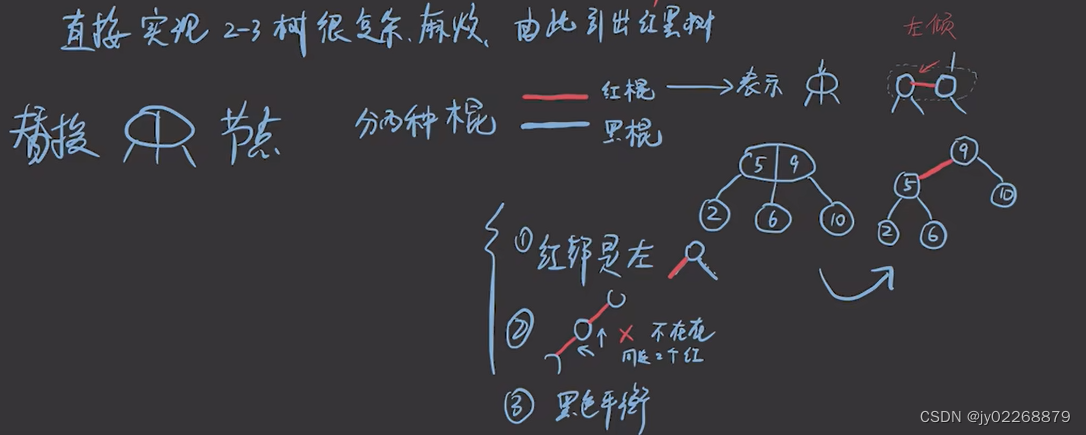 直接实现2-3树很复杂、麻烦、由此引出红黑树
左倾
替换 节点
分两种棍
红棍
表示
黑棍
5 9
2 6 10
9
5
10
2 6
① 红都是左
② × 不存在
同连2个红
③ 黑色平衡
CSDN @jy02268879